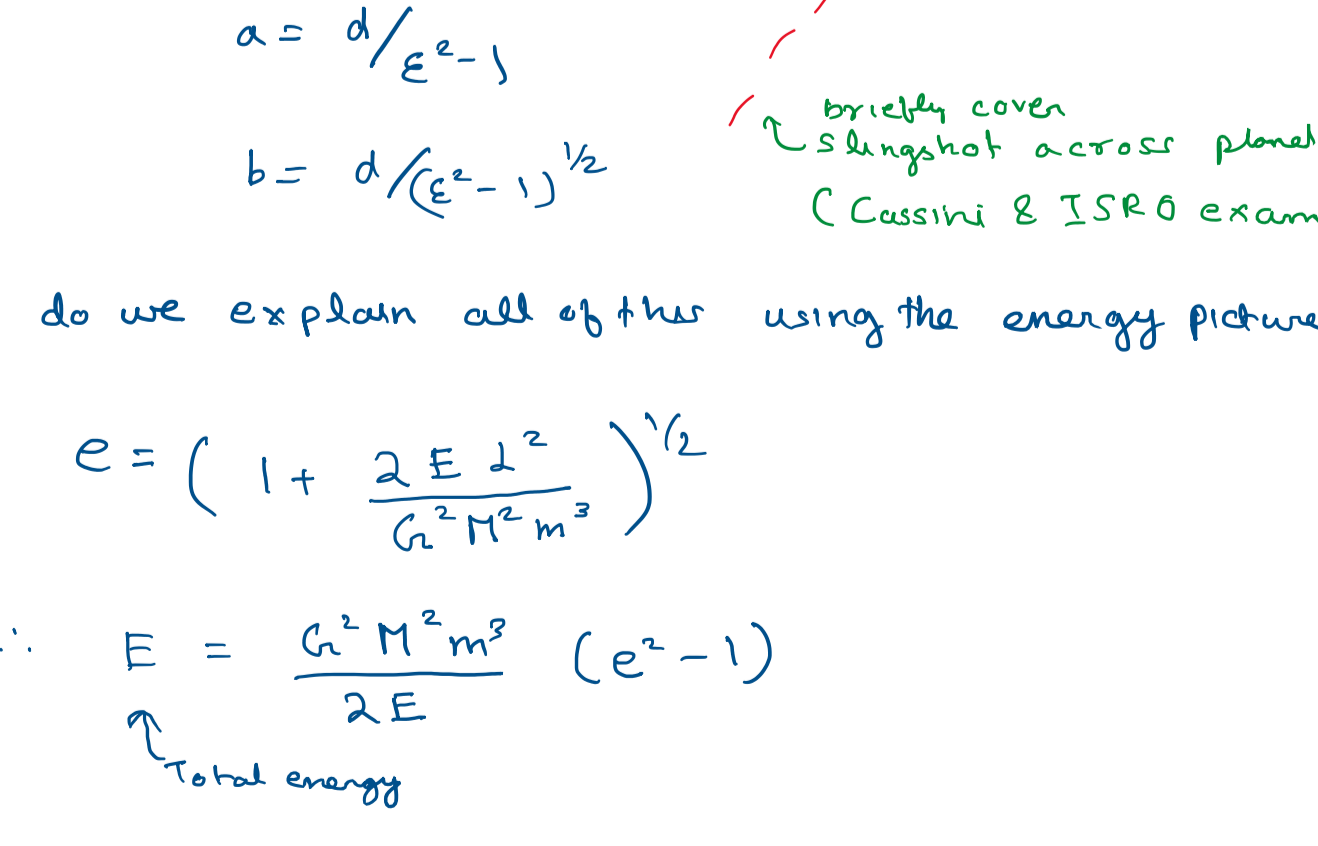 a = d/ε²-1
briefly cover
b = d/(ε²-1)^1/2
slingshot across planet
(Cassini & ISRO exam
do we explain all of this using the energy picture
e = ( 1 + 2EL² / G²M²m³ )^1/2
∴ E = G²M²m³ / 2E (e²-1)
Total energy